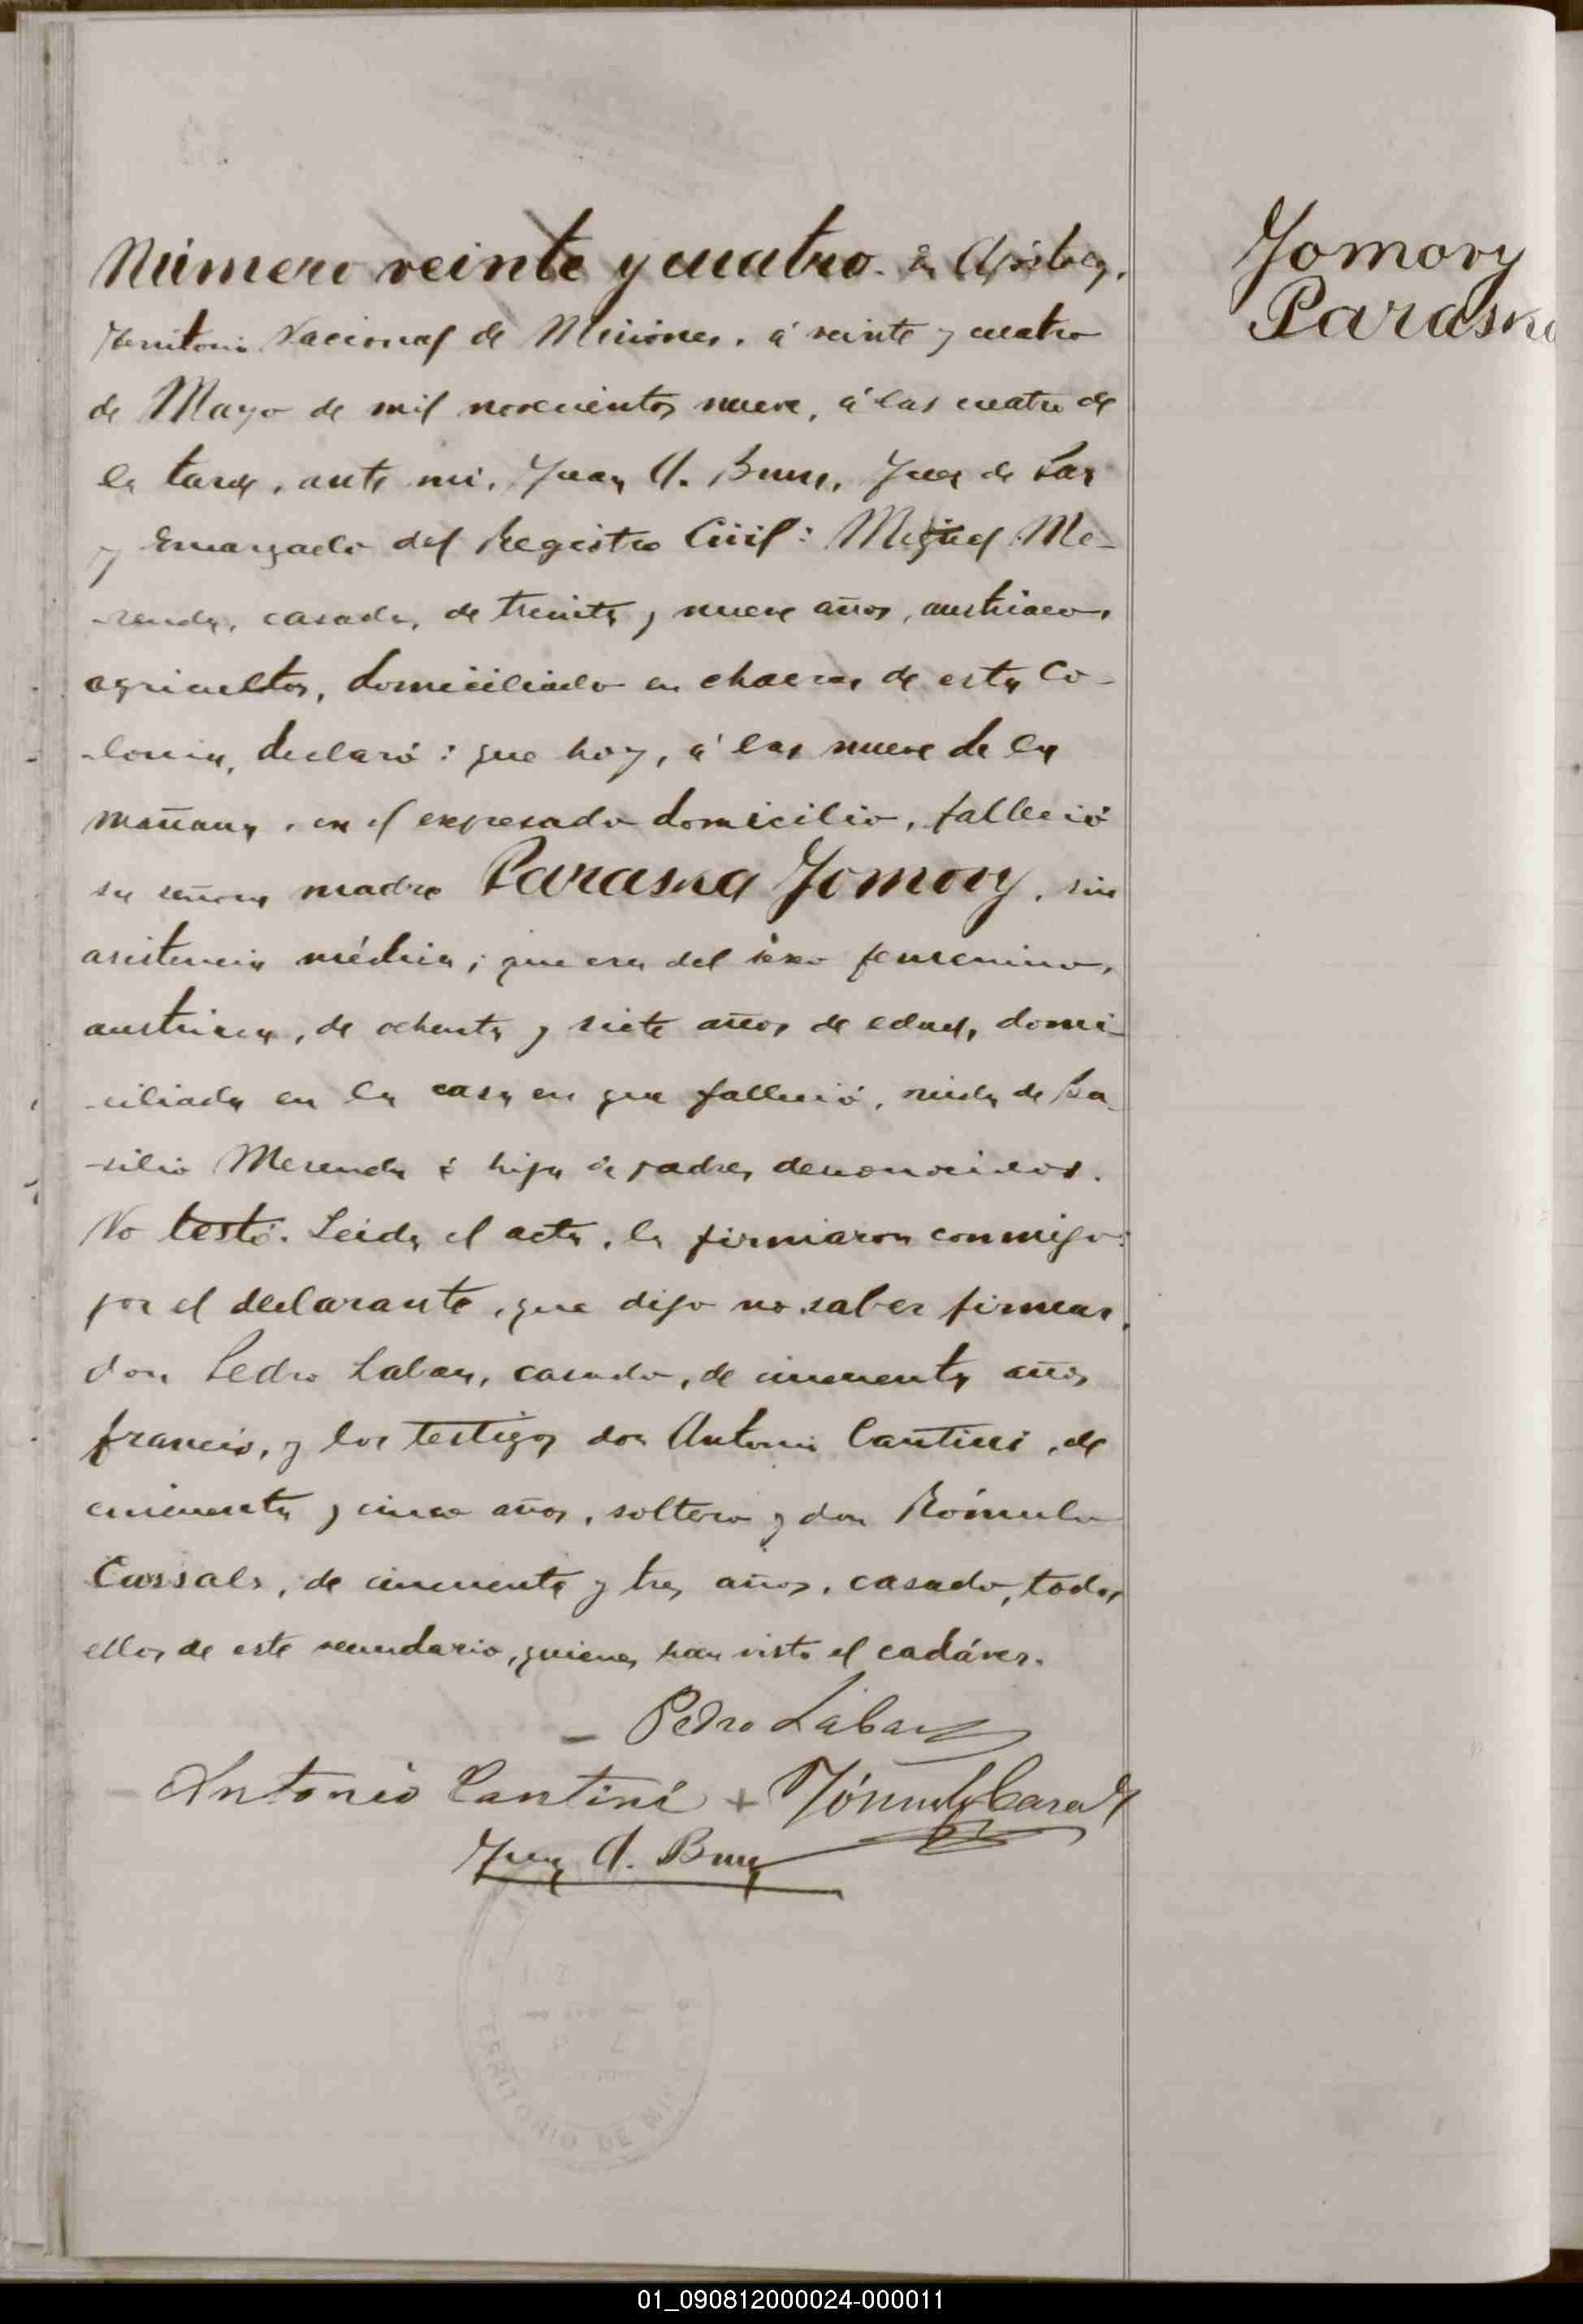 Número veinte y cuatro. En Apóstoles,
Jomovy
Paraska
Territorio Nacional de Misiones, á veinte y cuatro
de Mayo de mil novecientos nueve, á las cuatro de
la tarde, ante mi, Juan A. Juez de Paz
y Encargado del Registro Civil: Miguel Me-
-renda, casado, de treinta y nueve años, austriaco,
agricultor, domiciliado en chacra de esta Co-
-lonia, declaró: que hoy, á las nueve de la
mañana, en el expresado domicilio, falleció
su señora madre Paraska Jomovy, sin
asistencia médica; que era del sexo femenino,
austriaca, de ochenta y siete años de edad, domi-
-ciliada en la casa en que falleció, viuda de Ba-
-silio Merenda é hija de padres desconocidos.
No testó. Leida el acta, la firmaron conmigo:
por el declarante, que dijo no saber firmar,
don Pedro Labay, casado, de cincuenta años
francés, y los testigos don Antonio Cantini, de
cincuenta y cinco años, soltero y don Rómulo
Cassals, de cincuenta y tres años, casado, todos
ellos de este vecindario, quienes han visto el cadáver.
Pedro Labay
Antonio Cantini + Rómulo Casals
Juan A.
TERRITORIO DE MISIONES
01_090812000024-000011